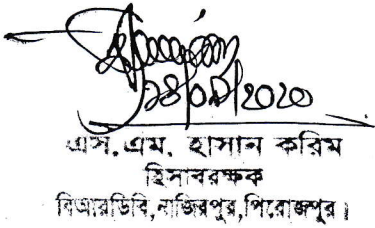 ২৪/০৯/২০২০
এস.এম. হাসান করিম
হিসাবরক্ষক
বিআরডিবি,নাজিরপুর,পিরোজপুর।